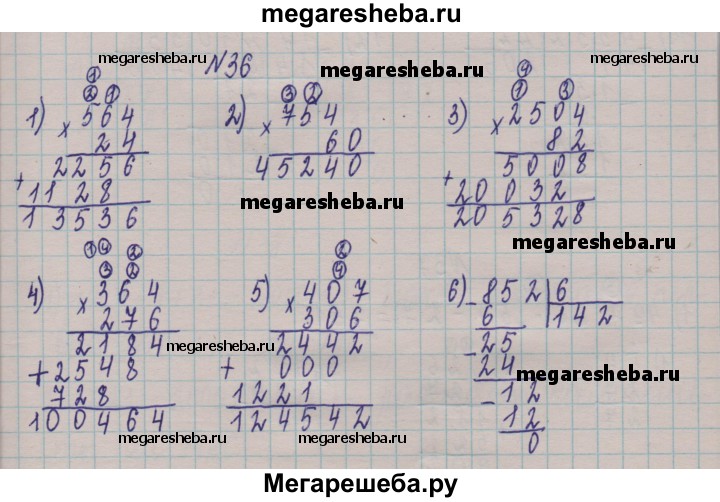 megaresheba.ru
N36
megaresheba.ru
megaresheba.ru
1)
① 
② ①
× 564
24
2256
+ 1128
13536
2)
③ ②
× 754
60
45240
megaresheba.ru
3)
④
① ③
× 2504
82
5008
+ 20032
205328
megaresheba.ru
4)
② 
③ ②
× 364
276
2184
+ 2548
728
100464
megaresheba.ru
megaresheba.ru
5)
②
④
× 407
306
2442
+ 000
1221
124542
megaresheba.ru
6)
- 852 | 6
6 142
- 25
24
- 12
12
0
megaresheba.ru
megaresheba.ru
Мегарешеба.ру